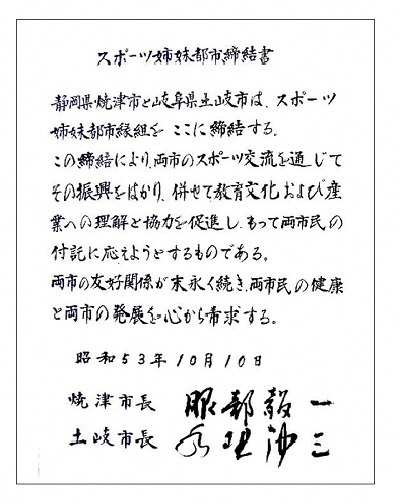 スポーツ姉妹都市締結書
静岡県・焼津市と岐阜県土岐市は、スポーツ
姉妹都市縁組をここに締結する。
この締結により、両市のスポーツ交流を通じて
その振興をはかり、併せて教育文化および産
業への理解と協力を促進し、もって両市民の
付託に応えようとするものである。
両市の友好関係が末永く続き、両市民の健康
と両市の発展を心から希求する。
昭和53年10月10日
焼津市長 服部毅一
土岐市長